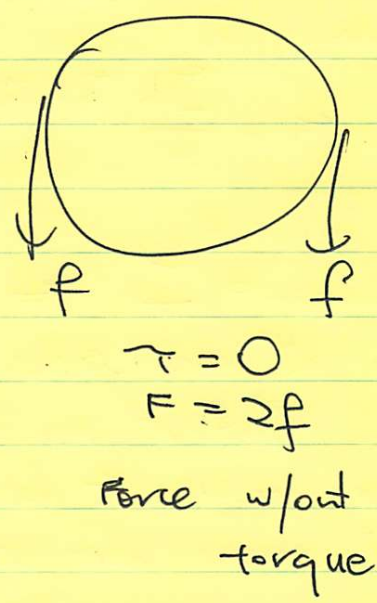 f f
τ = 0
F = 2f
Force w/out
torque